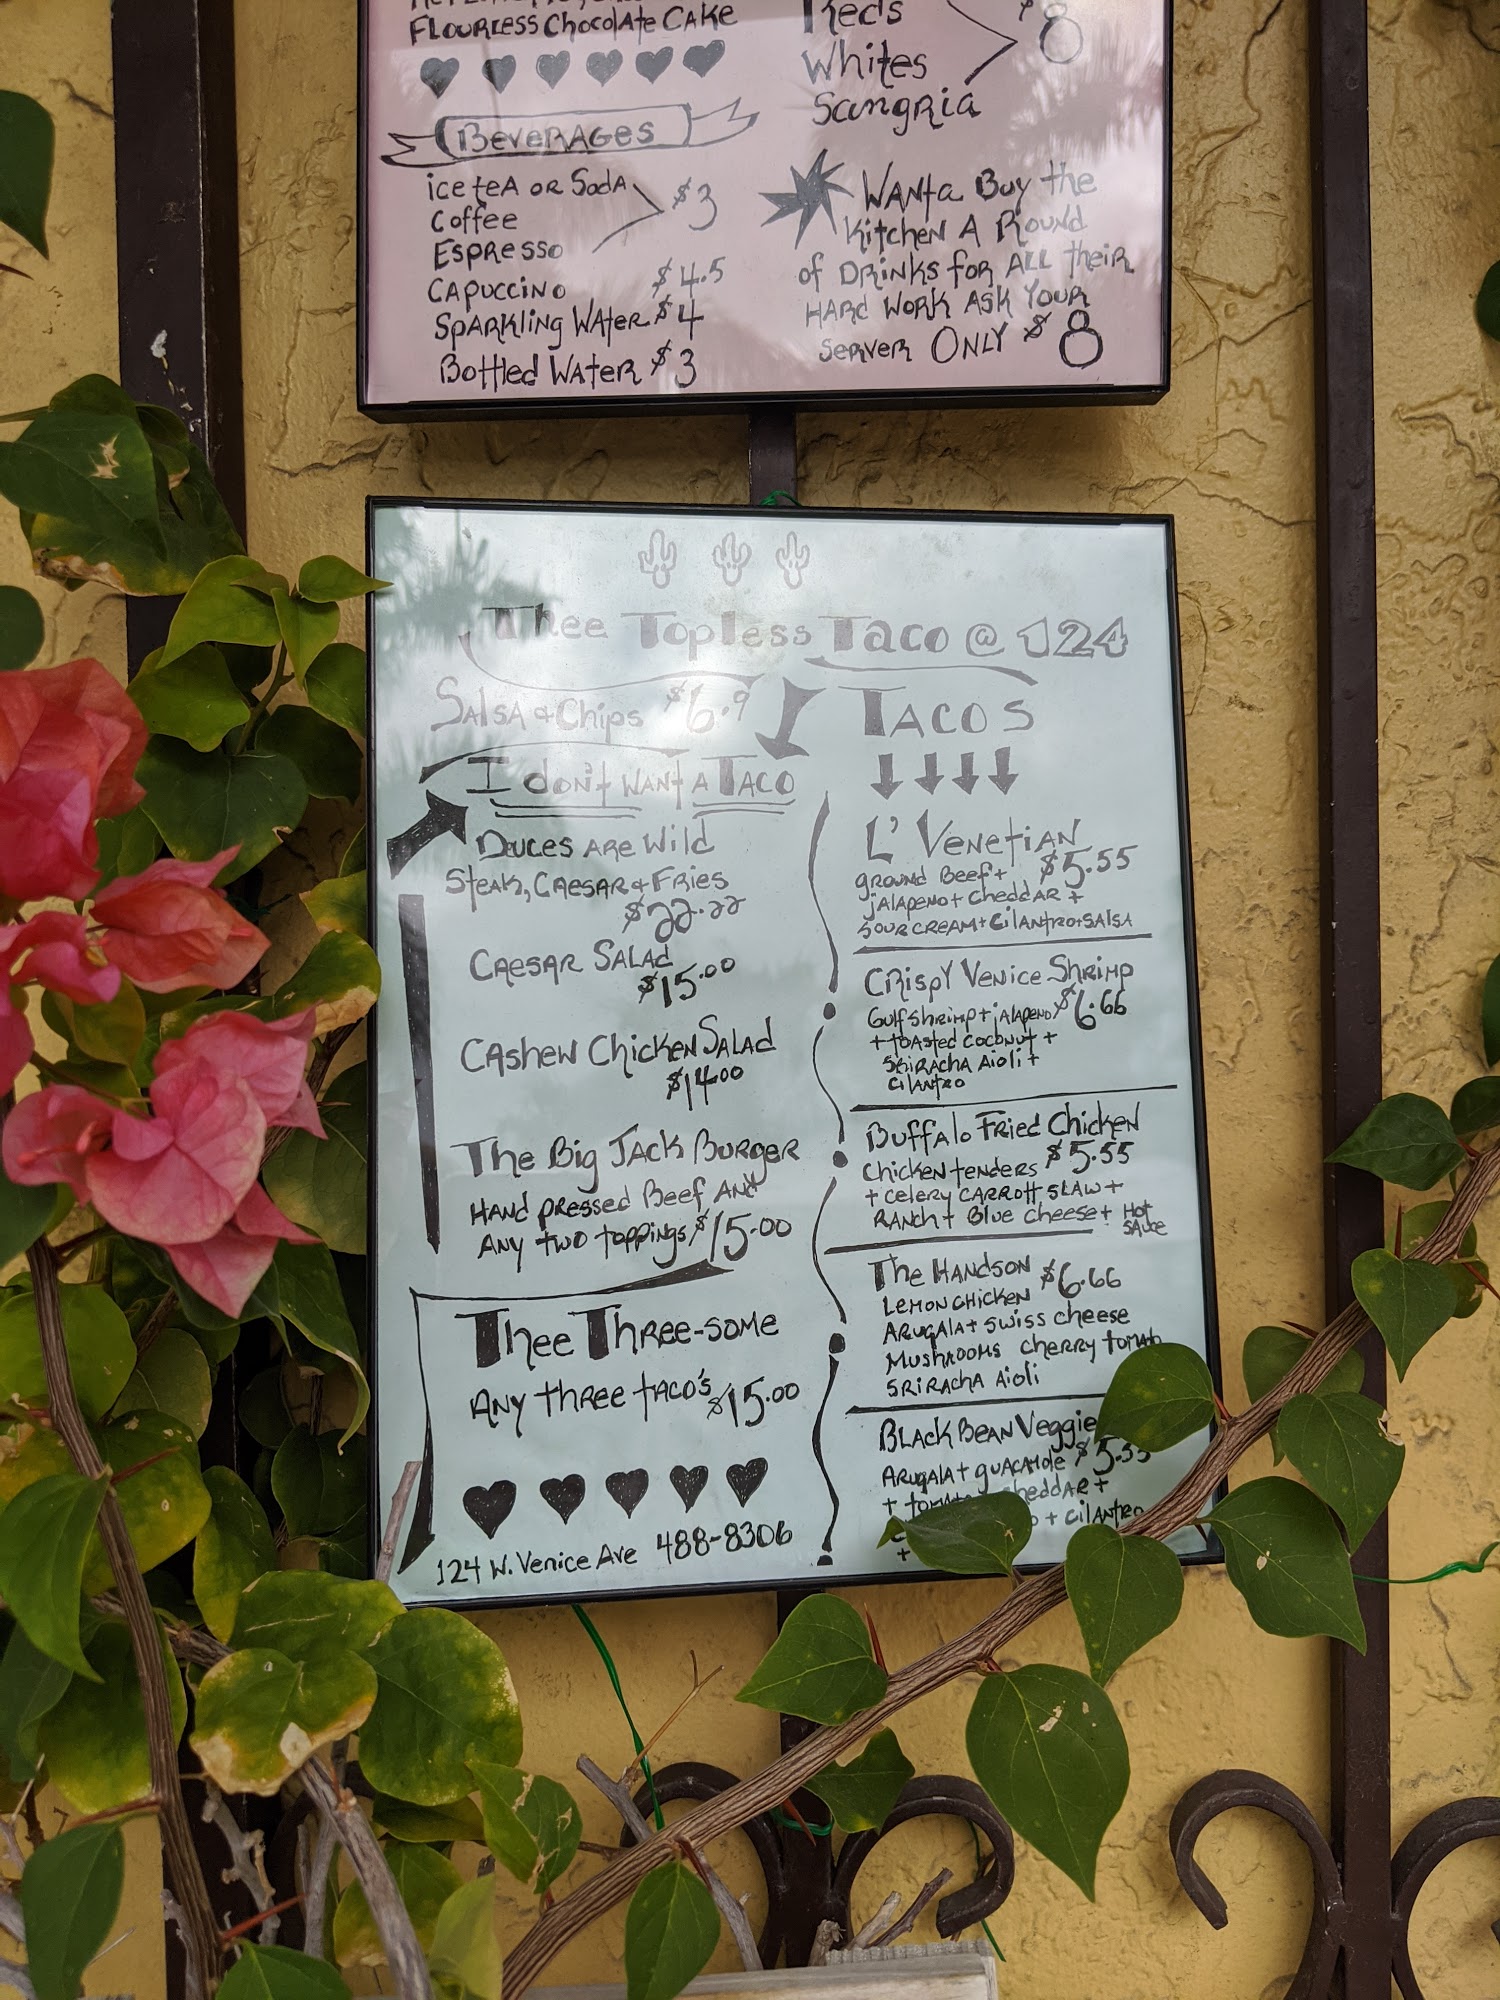 Flourless Chocolate Cake
Beverages
ice tea or Soda
Coffee
$3
Espresso
Capuccino $4.5
Sparkling Water $4
Bottled Water $3
Reds
$8
Whites
Sangria
Wanta Buy the
Kitchen A Round
of Drinks for All their
Hard Work Ask Your
Server Only $8
Thee Topless Taco @ 124
Salsa & Chips $6.9
I don't want a Taco
Deuces are Wild
Steak, Caesar & Fries
$22.22
Caesar Salad
$15.00
Cashew Chicken Salad
$14.00
The Big Jack Burger
Hand pressed Beef And
Any two toppings $15.00
Thee Three-some
Any three taco's $15.00
124 W. Venice Ave 488-8306
Tacos
L' Venetian
ground Beef + $5.55
jalapeno + cheddar +
sour cream + cilantro + salsa
Crispy Venice Shrimp
Gulf shrimp + jalapeno $6.66
+ toasted coconut +
sriracha aioli +
cilantro
Buffalo Fried Chicken
Chicken tenders $5.55
+ celery carrott slaw +
Ranch + Blue cheese + Hot
sauce
The Handson $6.66
Lemon chicken
Arugala + swiss cheese
Mushrooms cherry tomato
sriracha aioli
Black Bean Veggie
Arugala + guacamole $5.55
+ cheddar +
+ cilantro
+